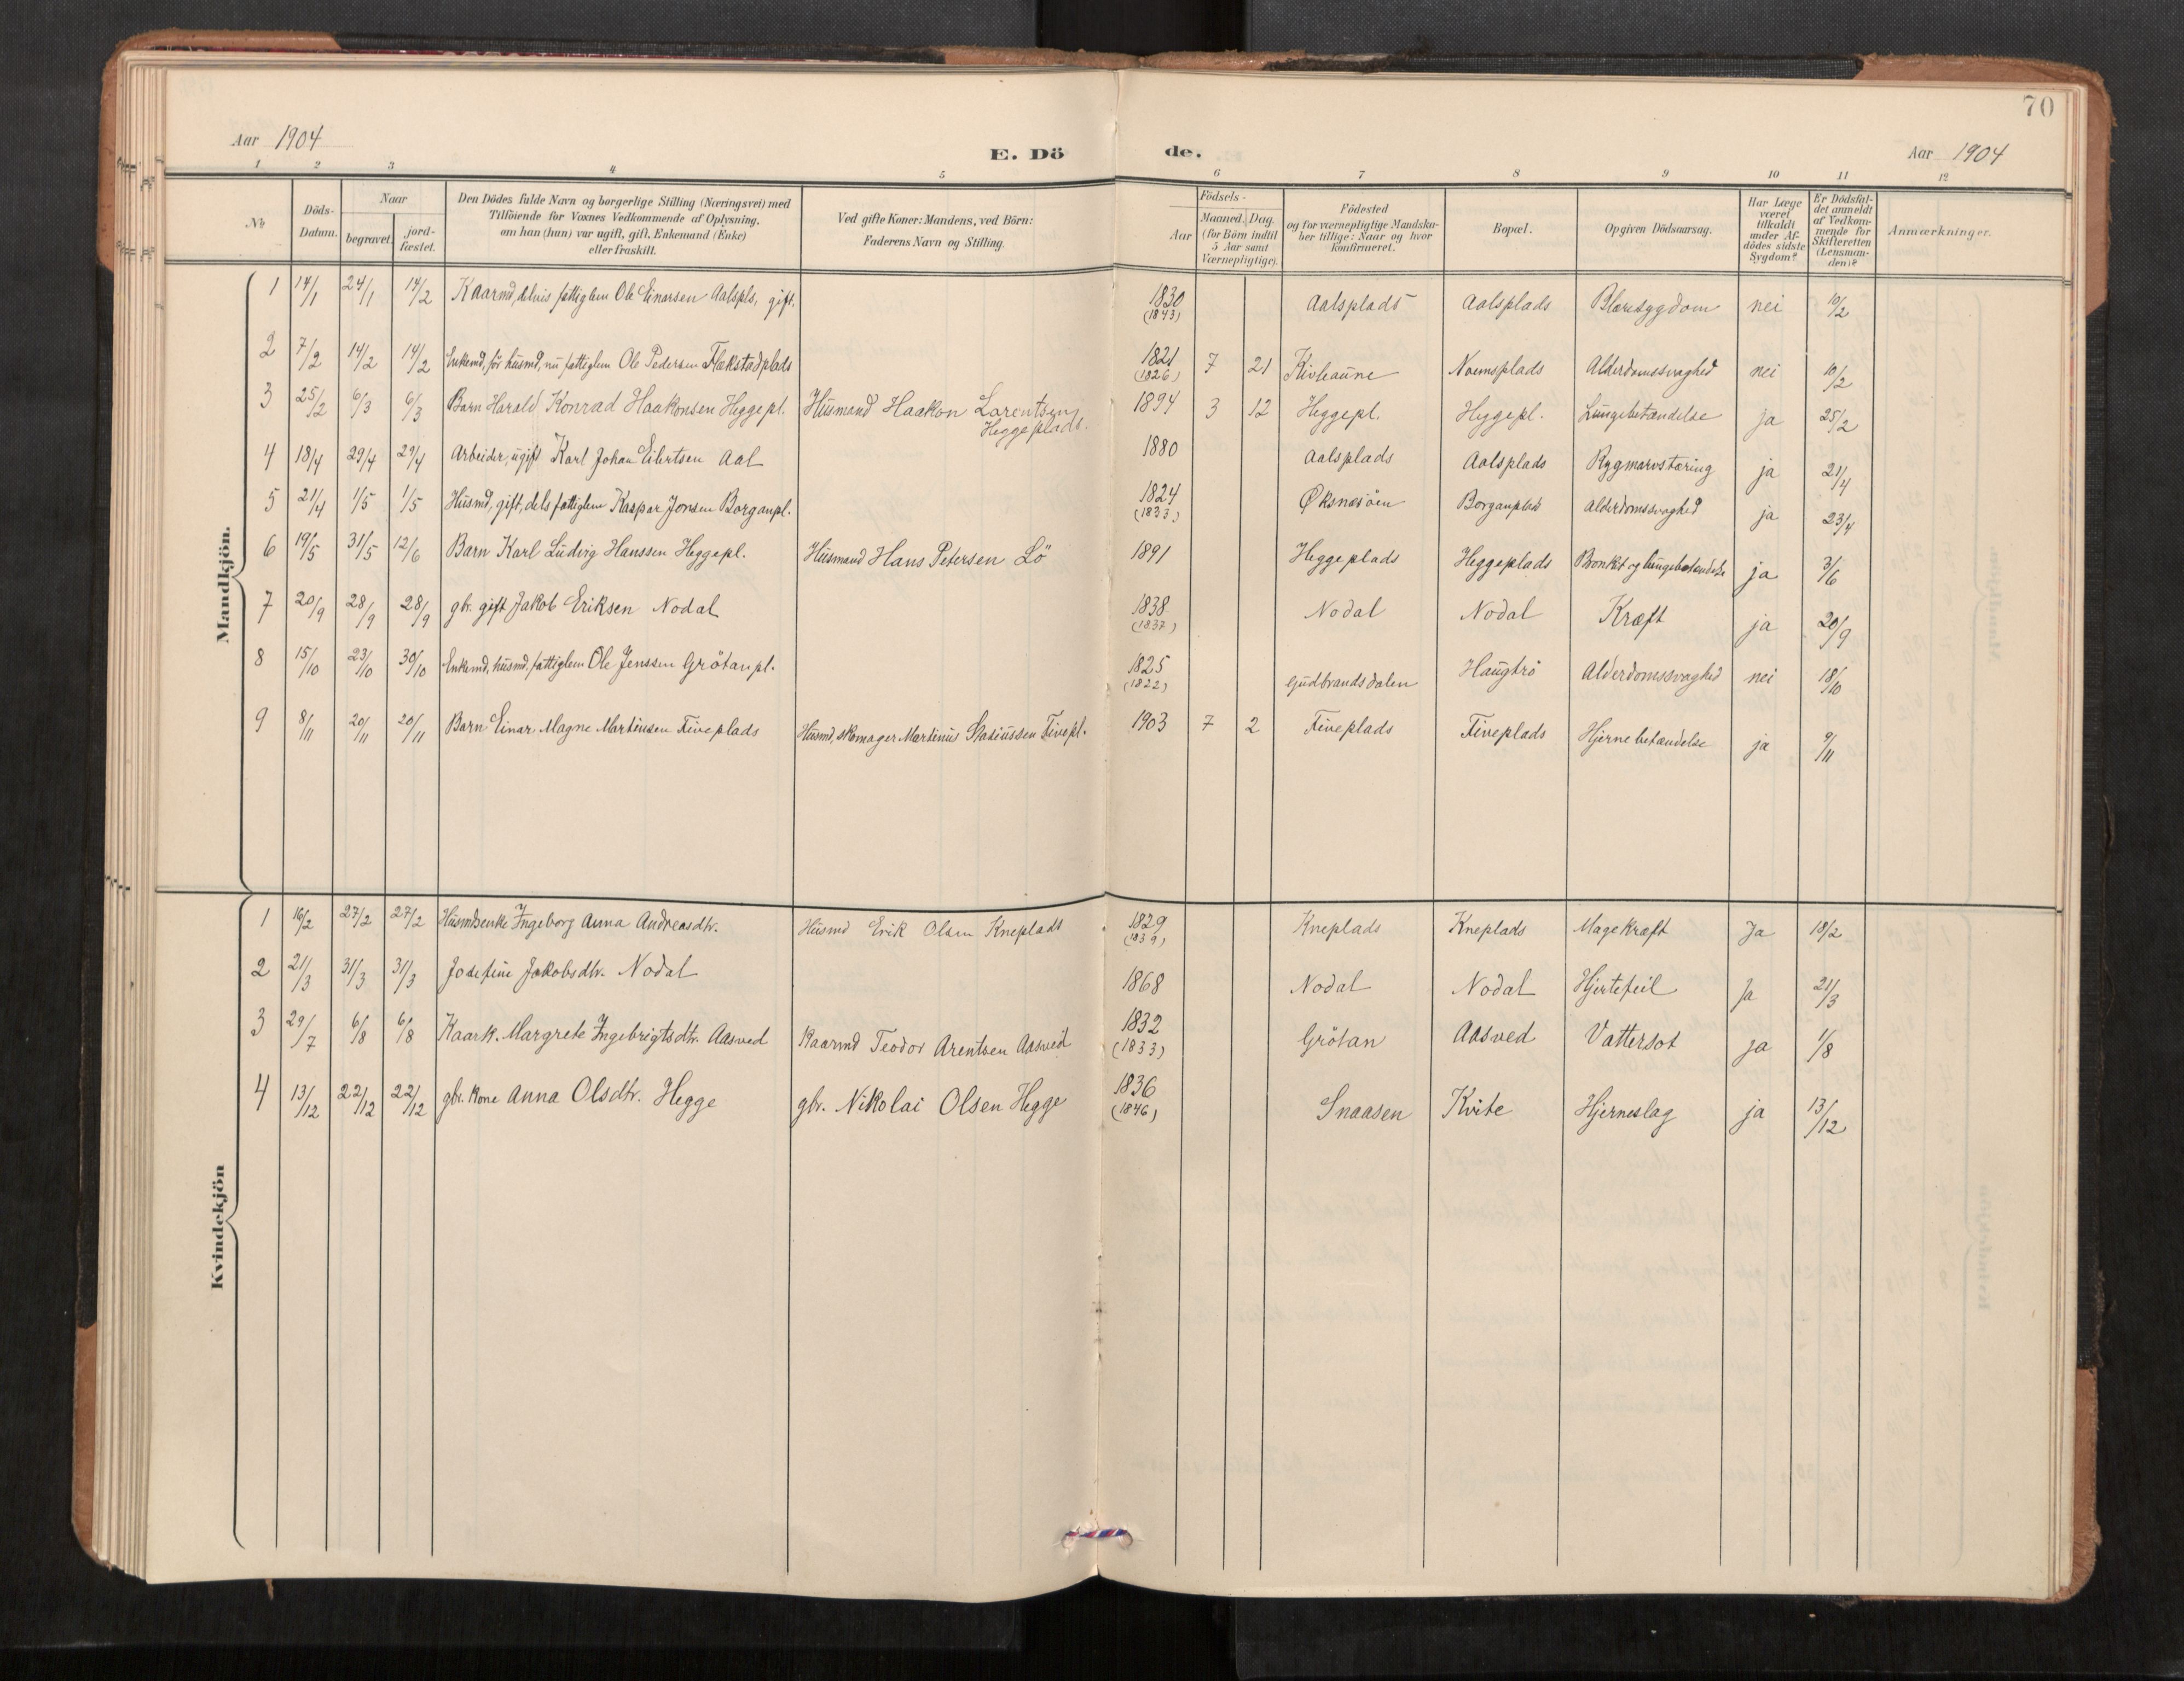 70
Aar 1904
E. Dö de.
Aar 1904
1 2 3 4 5 6 7 8 9 10 11 12
Nr. Döds-Datum. Naar begravet. jord-fæstet. Den Dödes fulde Navn og borgerlige Stilling (Næringsvei) med Tilföiende for Voxnes Vedkommende af Oplysning. om han (hun) var ugift, gift, Enkemand (Enke) eller fraskilt. Ved gifte Koner: Mandens, ved Börn: Faderens Navn og Stilling. Födsels- Aar Maaned. Dag. (for Börn indtil 5 Aar samt Værnepligtige). Födested og for værnepligtige Mandskaber tillige: Naar og hvor konfirmeret. Bopæl. Opgiven Dödsaarsag. Har Læge været tilkaldt under Afdödes sidste Sygdom? Er Dödsfaldet anmeldt af Vedkommende for Skifteretten (Lensmanden)? Anmærkninger.
Mandkjön.
1 14/1 24/1 14/2 Kaarmd, delvis fattiglem Ole Einarsen Aalspls, gift. 1830 (1843) Aalsplads Aalsplads Blæresygdom nei 10/2
2 7/2 14/2 14/2 Enkemd, för husmd, nu fattiglem Ole Pedersen Flækstadplads 1821 (1826) 7 21 Kivleaune Noemsplads Alderdomssvaghed nei 10/2
3 25/2 6/3 6/3 Barn Harald Konrad Haakonsen Heggepl. Husmand Haakon Larentsen Heggeplads. 1894 3 12 Heggepl. Heggepl. Lungebetændelse ja 25/2
4 18/4 29/4 29/4 Arbeider, ugift Karl Johan Eilertsen Aal 1880 Aalsplads Aalsplads Rygmarvstæring ja 21/4
5 21/4 1/5 1/5 Husmd, gift, dels fattiglem Kaspar Jonsen Borganpl. 1824 (1833) Øksnesöen Borganplads Alderdomssvaghed ja 23/4
6 19/5 31/5 12/6 Barn Karl Ludvig Hanssen Heggepl. Husmand Hans Petersen Lö 1891 Heggeplads Heggeplads Bronkit og lungebetændelse ja 3/6
7 20/9 28/9 28/9 gbr. gift Jakob Eriksen Nodal 1838 (1837) Nodal Nodal Kræft ja 20/9
8 15/10 23/10 30/10 Enkemd, husmd, fattiglem Ole Jenssen Grötanpl. 1825 (1822) Gudbrandsdalen Haugtrö Alderdomssvaghed nei 18/10
9 8/11 20/11 20/11 Barn Einar Magne Martinsen Fiveplads Husmd, skomager Martinus Stasiussen Fivepl. 1903 7 2 Fiveplads Fiveplads Hjernebetændelse ja 9/11
Kvindekjön
1 16/2 27/2 27/2 Husmdsenke Ingeborg Anna Andreasdtr. Husmd Erik Olsen Kneplads 1829 (1839) Kneplads Kneplads Magekræft Ja 18/2
2 21/3 31/3 31/3 Josefine Jakobsdtr. Nodal 1868 Nodal Nodal Hjertefeil Ja 21/3
3 29/7 6/8 6/8 Kaark. Margrete Ingebrigtsdtr. Aasved Kaarmd Teodor Arentsen Aasved 1832 (1833) Grötan Aasved Vattersot ja 1/8
4 13/12 22/12 22/12 gbr. kone Anna Olsdtr. Hegge gbr. Nikolai Olsen Hegge 1836 (1846) Snaasen Kvite Hjerneslag ja 13/12